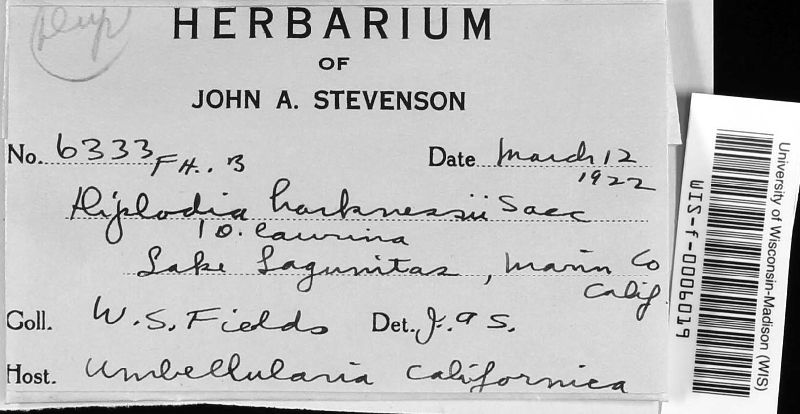 Dup
HERBARIUM
OF
JOHN A. STEVENSON
No. 6333 F.H. B Date March 12
1922
Diplodia harknessii Sacc
/ D. laurina
Lake Lagunitas, Marin Co
Calif.
Coll. W.S. Fields Det. J.A S.
Host. Umbellularia californica
University of Wisconsin-Madison (WIS)
WIS-f-0006019